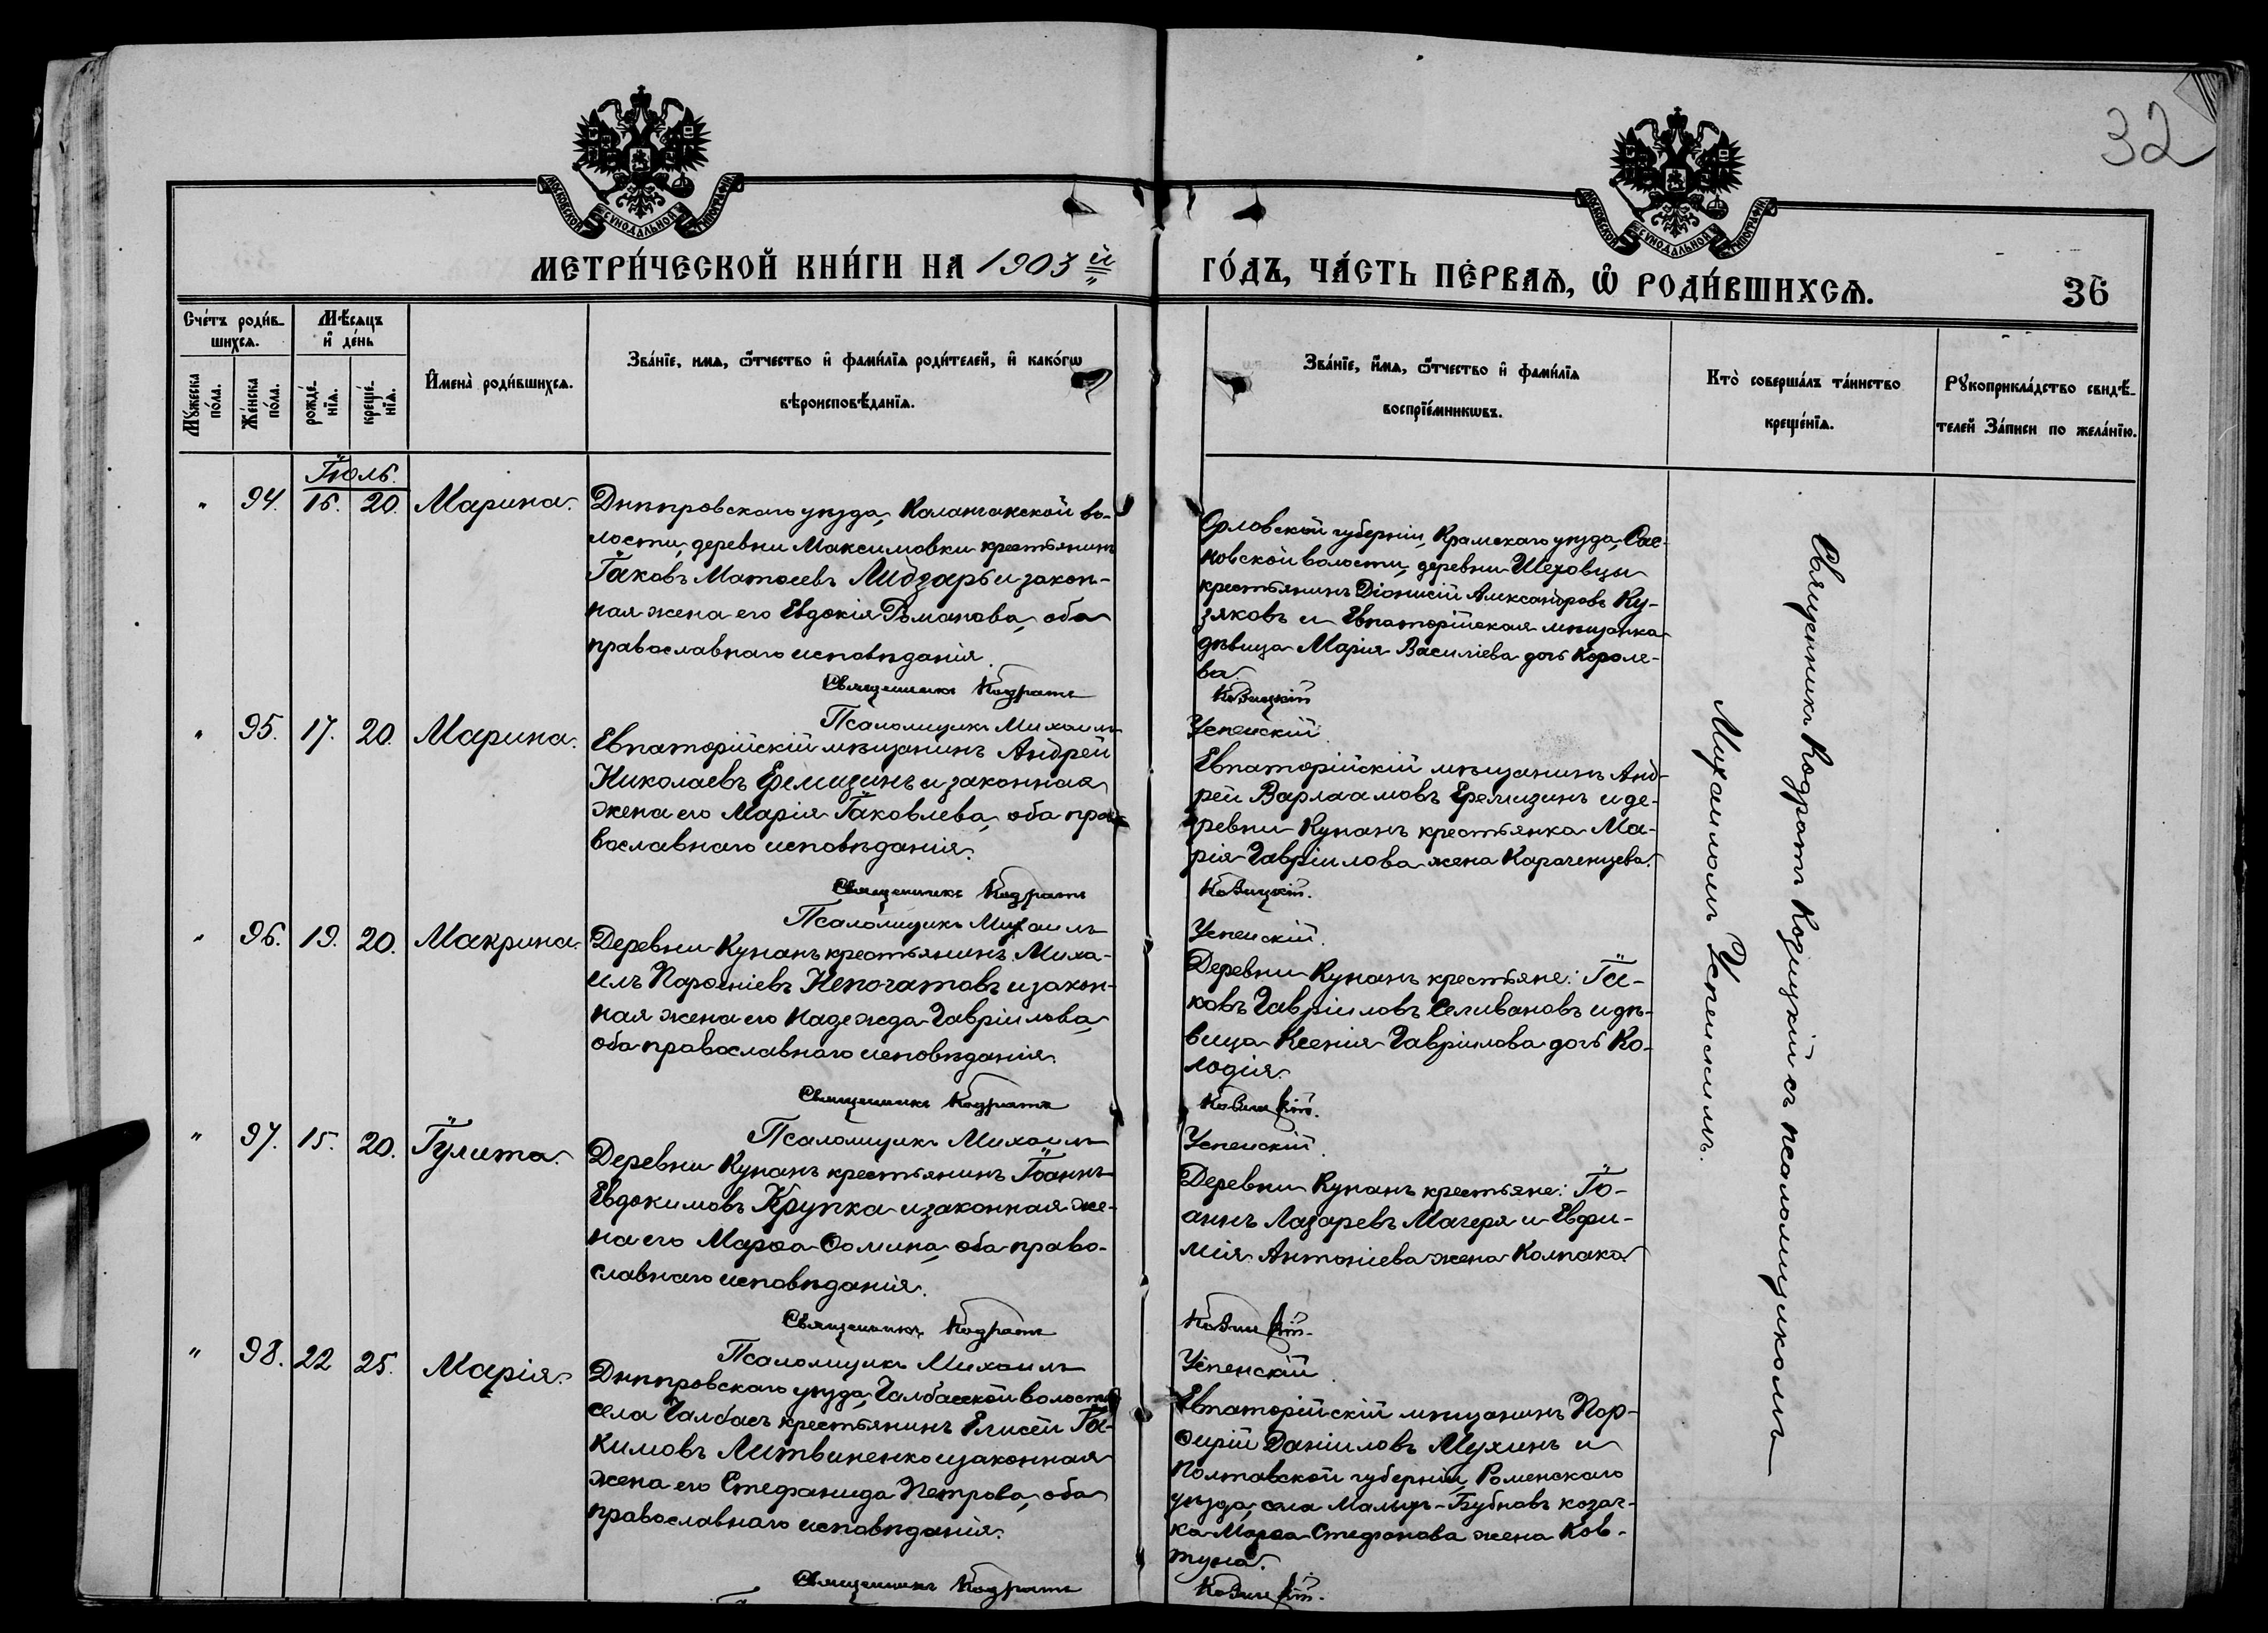 32
МОСКОВСКОЙ СУНОДАЛЬНОЙ ТИПОГРАФІИ
МОСКОВСКОЙ СУНОДАЛЬНОЙ ТИПОГРАФІИ
МЕТРИ́ЧЕСКОЙ КНИ́ГИ НА 1903й
ГО́ДЪ, ЧА́СТЬ ПЕ́РВАѦ, Ѡ҆ РОДИ́ВШИХСѦ.
36
Сче́тъ роди́в-
шихсѧ.
Мѣ́сѧцъ
и҆ де́нь
Мꙋ́жеска по́ла.
Же́нска по́ла.
рожде́-
нїѧ.
креще́-
нїѧ.
И҆мена̀ роди́вшихсѧ.
Зва́нїе, имѧ, ѻ҆́тчество и҆ фами́лїѧ роди́телей, и҆ како́гѡ
вѣроисповѣ́данїѧ.
Зва́нїе, и҆́мѧ, ѻ҆́тчество и҆ фами́лїѧ
воспрїе́мникѡвъ.
Кто̀ соверша́лъ та́инство
креще́нїѧ.
Рꙋкоприкла́дство свидѣ́-
телей За́писи по жела́нїю.
Іюль.
" 94. 16. 20. Марина.
Днѣпровскаго уѣзда, Каланчакской во-
лости, деревни Максимовки крестьянинъ
Іаковъ Матѳеевъ Лидзарь и закон-
ная жена его Евдокія Романова, оба
православнаго исповѣданія.
Священникъ Кодратъ
Псаломщикъ Михаилъ
Орловской губерніи, Крамскаго уѣзда, Сос-
новской волости, деревни Шеховцы
крестьянинъ Діонисій Александровъ Ку-
зяковъ и Евпаторійская мѣщанка
дѣвица Марія Василіева дочь Короле-
ва.
Козицкій
Успенскій.
" 95. 17. 20. Марина.
Евпаторійскій мѣщанинъ Андрей
Николаевъ Еремизинъ и законная
жена его Марія Іаковлева, оба пра-
вославнаго исповѣданія.
Священникъ Кодратъ
Псаломщикъ Михаилъ
Евпаторійскій мѣщанинъ Анд-
рей Варлаамовъ Еремизинъ и де-
ревни Кунанъ крестьянка Ма-
рія Гавріилова жена Карачевцева.
Козицкій.
Успенскій.
" 96. 19. 20. Макрина.
Деревни Кунанъ крестьянинъ Миха-
илъ Парѳеніевъ Непочатовъ и закон-
ная жена его Надежда Гавріилова,
оба православнаго исповѣданія.
Священникъ Кодратъ
Псаломщикъ Михаилъ
Деревни Кунанъ крестьяне: Іа-
ковъ Гавріиловъ Селивановъ и дѣ-
вица Ксенія Гавріилова дочь Ко-
лодія.
Козицкій.
Успенскій.
" 97. 15. 20. Іулита.
Деревни Кунанъ крестьянинъ Іоаннъ
Евдокимовъ Крупка и законная же-
на его Марѳа Ѳомина, оба право-
славнаго исповѣданія.
Священникъ Кодратъ
Псаломщикъ Михаилъ
Деревни Кунанъ крестьяне: Іо-
аннъ Лазаревъ Магеря и Евфи-
мія Антоніева жена Колпака.
Козицкій.
Успенскій.
" 98. 22 25. Марія.
Днѣпровскаго уѣзда, Чалбасской волости
села Чалбасъ крестьянинъ Елисей Іа-
кимовъ Литвиненко и законная
жена его Стефанида Петрова, оба
православнаго исповѣданія.
Священникъ Кодратъ
Евпаторійскій мѣщанинъ Пор-
фирій Даніиловъ Мухинъ и
Полтавской губерніи, Роменскаго
уѣзда, села Малыхъ-Бубновъ козач-
ка Марѳа Стефанова жена Ков-
туна.
Козицкій.
Священникъ Кодратъ Козицкій съ псаломщикомъ
Михаиломъ Успенскимъ.